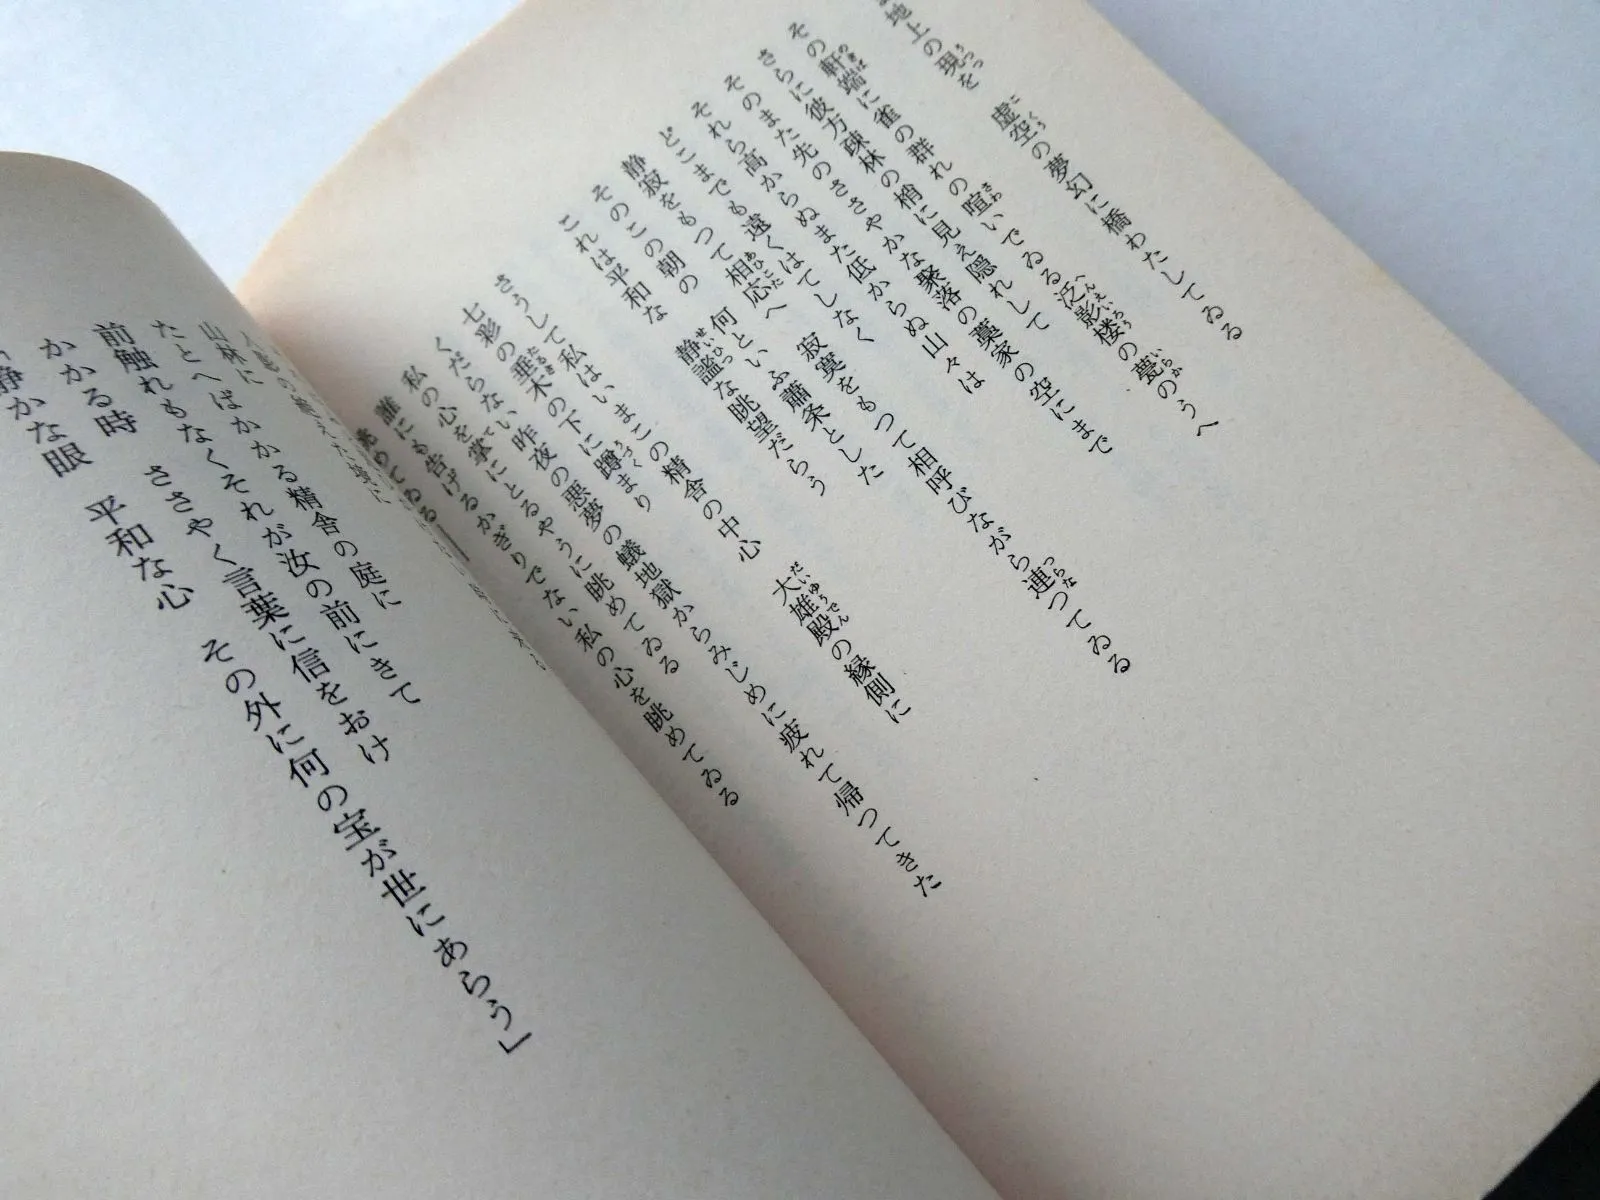 地上の現を　虚空の夢幻に橋わたしてゐる
その軒端に雀の群れの喧いでゐる泛影楼の甍のうへ
さらに彼方疎林の梢に見え隠れして
そのまた先のささやかな聚落の藁家の空にまで
それら高からぬまた低からぬ山々は
どこまでも遠くはてしなく
静寂をもつて相応へ　寂寞をもつて相呼びながら連つてゐる
そのこの朝の　何といふ蕭条とした
これは平和な　静謐な眺望だらう
さうして私はいまこの精舎の中心　大雄殿の縁側に
七彩の垂木の下に蹲まり
くだらない昨夜の悪夢の蟻地獄からみじめに疲れて帰つてきた
私の心を掌にとるやうに眺めてゐる
誰にも告げるかぎりでない私の心を眺めてゐる
眺めてゐる――
山林に
たとへばかかる精舎の庭に
前触れもなくそれが汝の前にきて
かかる時　ささやく言葉に信をおけ
静かな眼　平和な心　その外に何の宝が世にあらう」